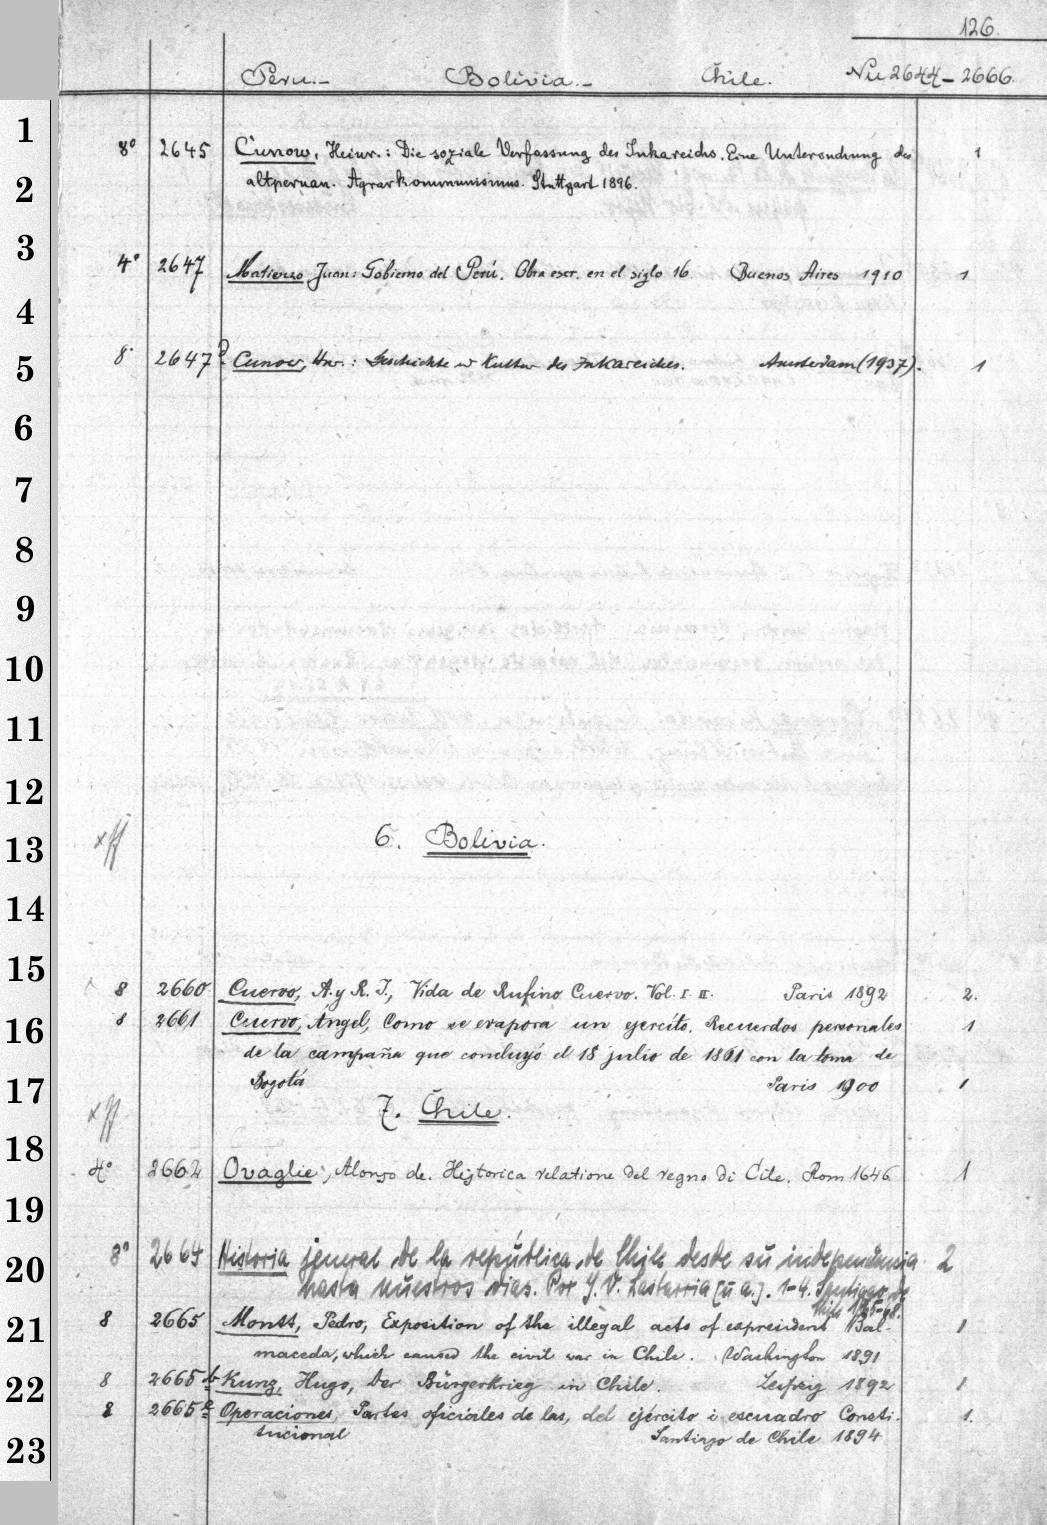 126.
Peru.- Bolivia.- Chile. Nu 2644-2666.
1
8° 2645 Cunow, Heinr.: Die soziale Verfassung des Inkareichs. Eine Untersuchung des 1
2
altperuan. Agrarkommunismus. Stuttgart 1896.
3
4° 2647 Matienzo Juan: Gobierno del Perú. Obra escr. en el siglo 16. Buenos Aires 1910 1
4
5
8° 2647 Cunow, Hnr.: Geschichte u Kultur des Inkareiches. Amsterdam (1937). 1
6
7
8
9
10
11
12
13
6. Bolivia.
14
15
8 2660 Cuervo, A. y R. J., Vida de Rufino Cuervo. Vol. I. II. Paris 1892 2.
16
8 2661 Cuervo, Angel, Como se evapora un ejercito. Recuerdos personales 1
de la campaña que concluyó el 18 julio de 1861 con la toma de
17
Bogotá Paris 1900 1
7. Chile.
18
4° 2662 Ovaglie, Alonso de. Historica relatione del regno di Cile. Rom 1646 1
19
20
8° 2664 Historia jeneral de la república de Chile desde su independencia 2
hasta nuestros dias. Por J. V. Lastarria [u a.]. 1-4. Santiago de
Chile
21
8 2665 Montt, Pedro, Exposition of the illegal acts of expresident Bal- 1
maceda, which caused the civil war in Chile. Washington 1891
22
8 2665 b Kunz, Hugo, Der Bürgerkrieg in Chile. Leipzig 1892 1
8 2665 Operaciones, Partes oficiales de las, del ejército i escuadra Consti- 1.
23
tucional Santiago de Chile 1894